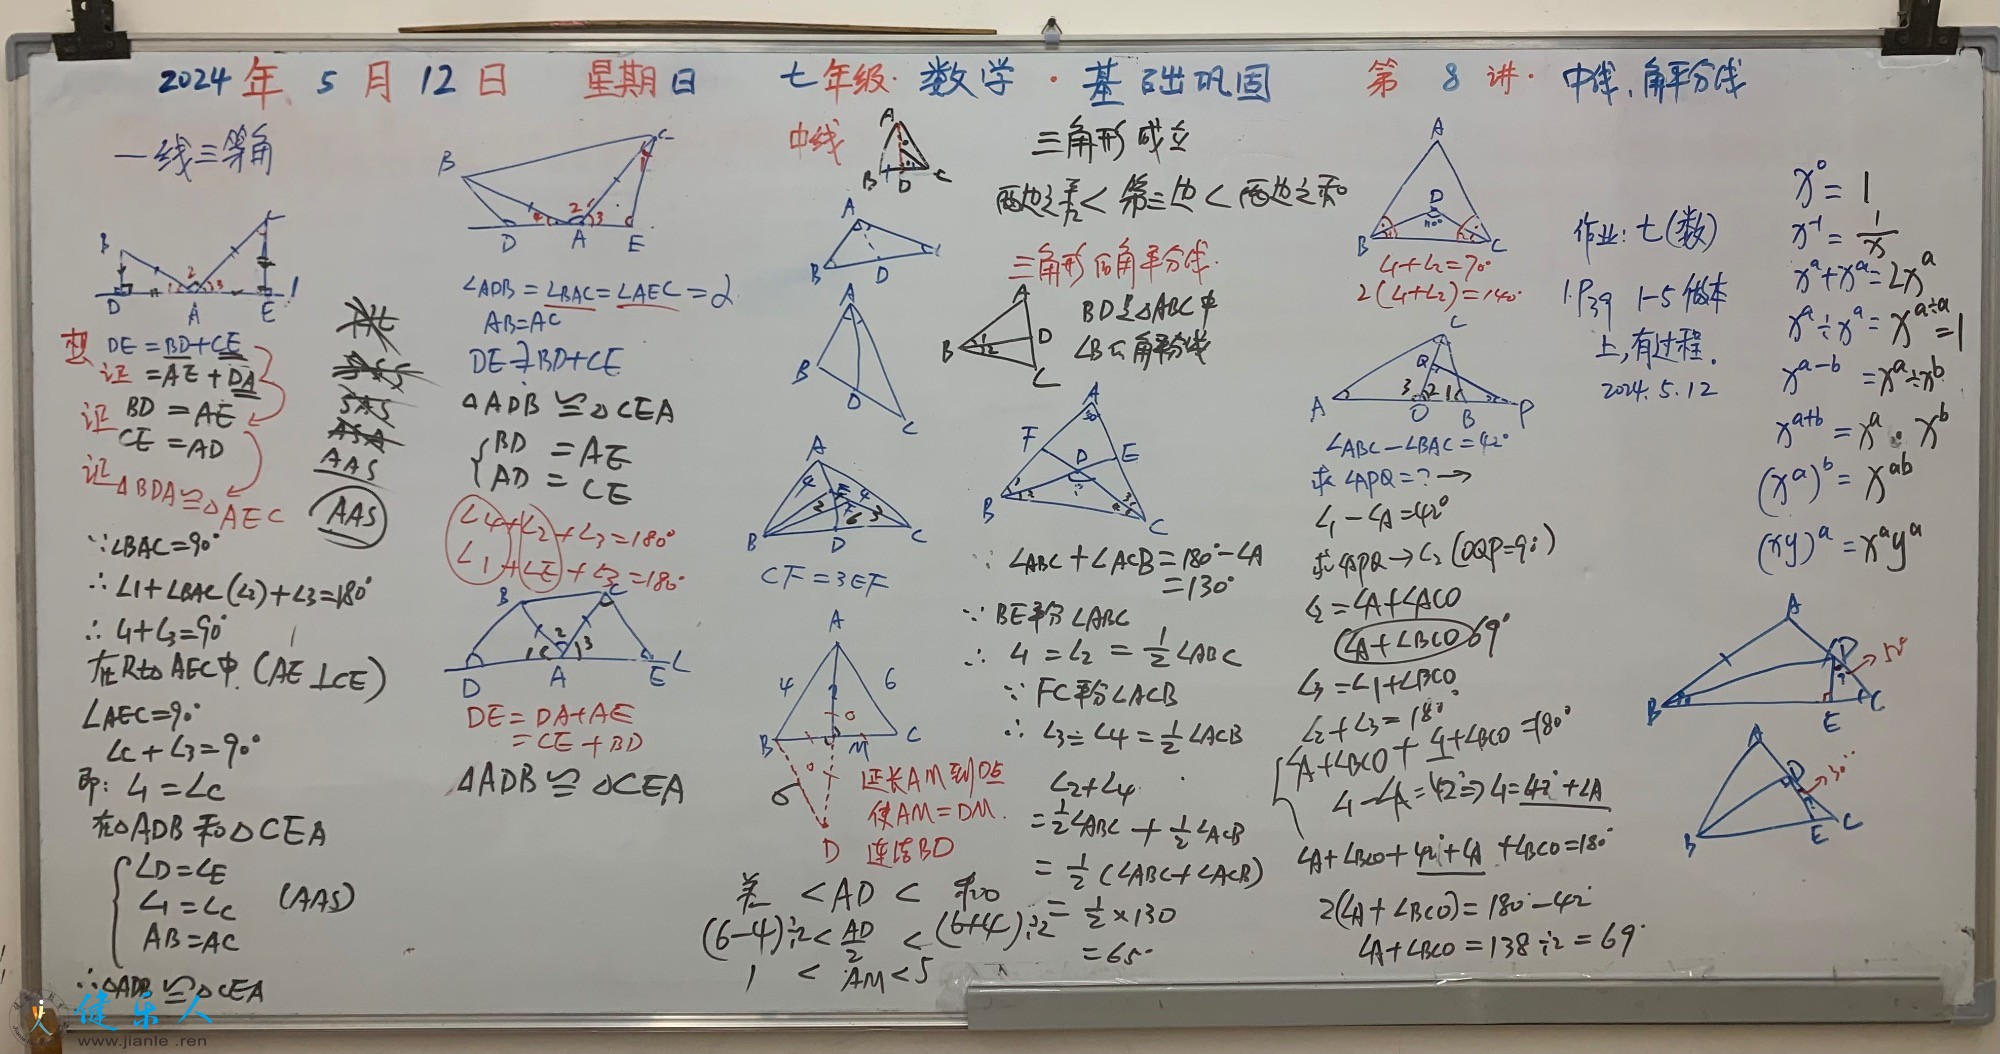 2024年5月12日 星期日 七年级·数学·基础巩固 第8讲·中线、角平分线
一线三等角
B C
D A E l
1 2 3
想 DE=BD+CE
证 =AE+DA
证 BD=AE
CE=AD
证 △BDA≌△AEC
SAS
ASA
AAS
AAS
∵∠BAC=90°
∴∠1+∠BAC(∠2)+∠3=180°
∴∠1+∠3=90°
在Rt△AEC中.(AE⊥CE)
∠AEC=90°
∠C+∠3=90°
即:∠1=∠C
在△ADB和△CEA
∠D=∠E
∠1=∠C (AAS)
AB=AC
∴△ADB≌△CEA
B C
4 2 1 3
D A E
∠ADB=∠BAC=∠AEC=α
AB=AC
DE=BD+CE
△ADB≌△CEA
BD=AE
AD=CE
∠4+∠2+∠3=180°
∠1+∠E+∠3=180°
B C
1 2 3
D A E L
DE=DA+AE
=CE+BD
△ADB≌△CEA
中线
A
B D C
A
B D C
A
B
D
C
A
4 E 4
2 F 3
6
B D C
CF=3EF
A
4 6
B M C
6
D
延长AM到D点
使AM=DM.
连结BD
差<AD<和
(6-4)÷2<AD/2<(6+4)÷2
1<AM<5
三角形成立
两边之差<第三边<两边之和
三角形的角平分线.
A
B 1 2 D
C
BD是△ABC中
∠B的角平分线
A
F E
D
B 1 2 3 4 C
∵∠ABC+∠ACB=180°-∠A
=130°
∵BE平分∠ABC
∴∠1=∠2=1/2∠ABC
∵FC平分∠ACB
∴∠3=∠4=1/2∠ACB
∠2+∠4
=1/2∠ABC+1/2∠ACB
=1/2(∠ABC+∠ACB)
=1/2×130
=65°
A
D
110°
B C
∠1+∠2=70°
2(∠1+∠2)=140°
C
Q
3 2 1
A O B P
∠ABC-∠BAC=42°
求∠APQ=?→
∠1-∠A=42°
求∠APQ→∠2(OQP=90°)
∠2=∠A+∠ACO
∠A+∠BCO 69°
∠3=∠1+∠BCO
∠2+∠3=180°
∠A+∠BCO+∠1+∠BCO=180°
∠1-∠A=42°⇒∠1=42°+∠A
∠A+∠BCO+42°+∠A+∠BCO=180°
2(∠A+∠BCO)=180°-42°
∠A+∠BCO=138÷2=69°
作业:七(数)
1.P39 1-5做本
上,有过程.
2024.5.12
x⁰=1
x⁻¹=1/x
xᵃ+xᵃ=2xᵃ
xᵃ÷xᵃ=xᵃ÷ᵃ=1
xᵃ⁻ᵇ=xᵃ÷xᵇ
xᵃ⁺ᵇ=xᵃ·xᵇ
(xᵃ)ᵇ=xᵃᵇ
(xy)ᵃ=xᵃyᵃ
A
D
B E C
A
D 30°
B E C
健乐人
www.jianle.ren